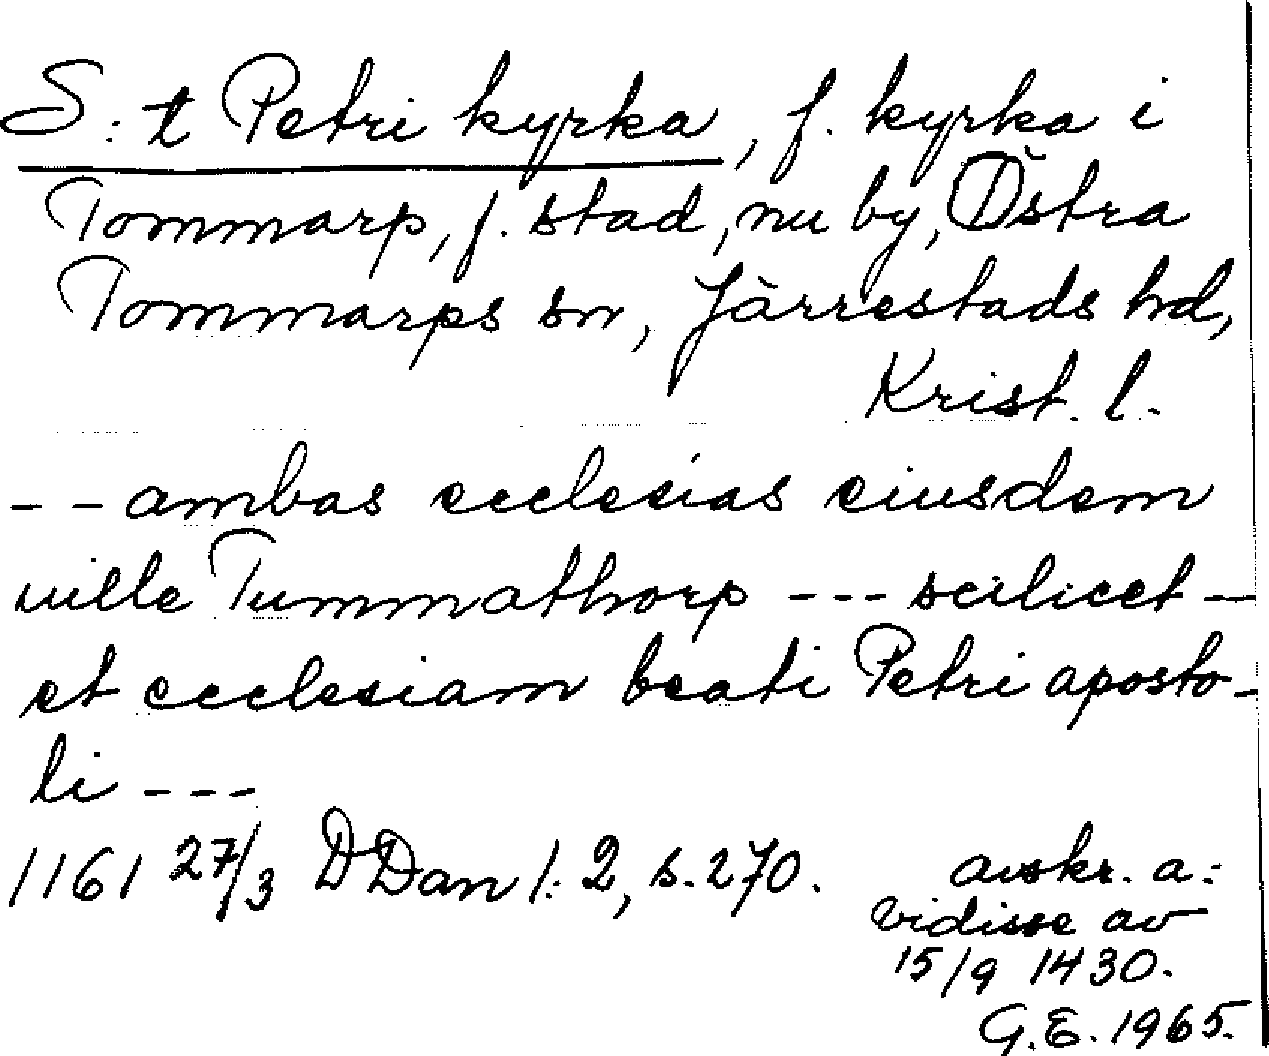 S:t Petri kyrka, f. kyrka i
Tommarp, f. stad, nu by, Östra
Tommarps sn, Järrestads hd,
Krist. l.
-- ambas ecclesias eiusdem
uille Tummathorp --- scilicet –
et ecclesiam beati Petri aposto-
li ---
1161 27/3 DDan 1:2, s. 270. avskr. a:
vidisse av
15/9 1430.
G.E. 1965.